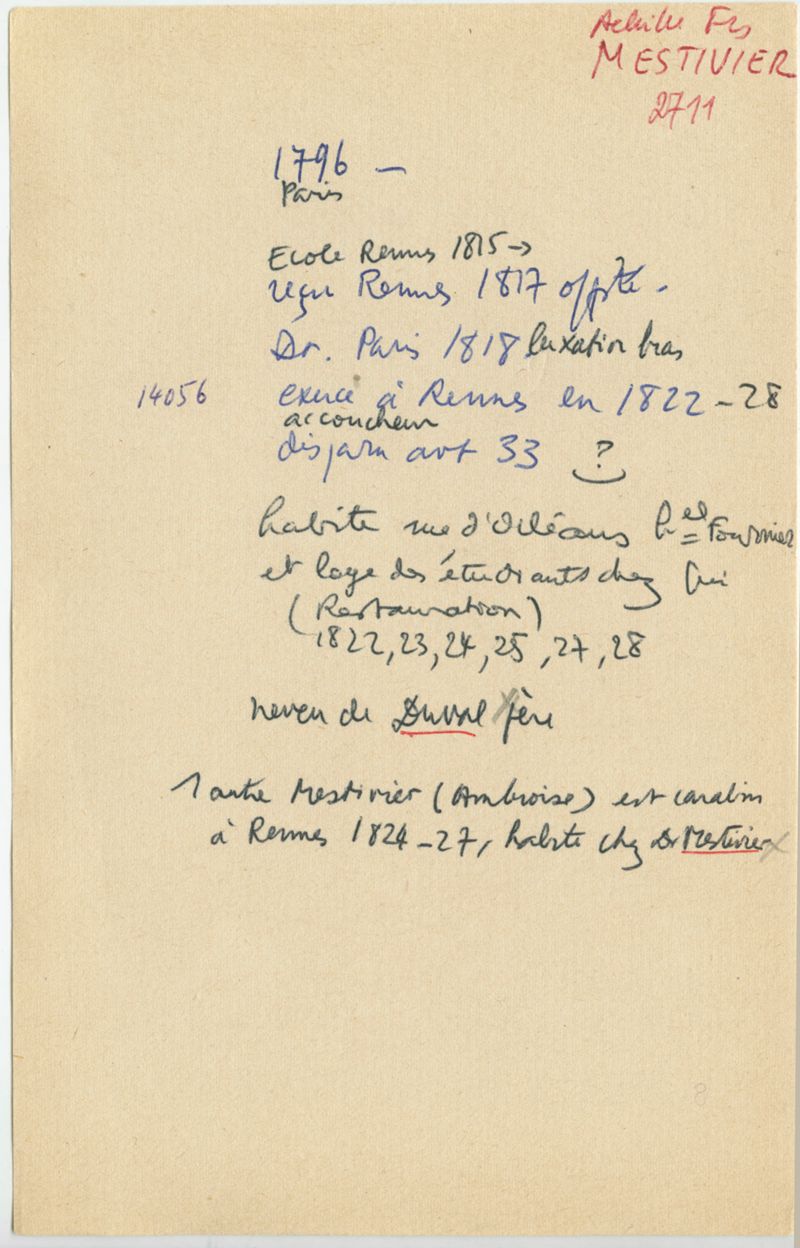 Achille Frs
MESTIVIER
2711
1796 –
Paris
Ecole Rennes 1815 →
reçu Rennes 1817 offté -
Dr. Paris 1818 luxation bras
14056 exerce à Rennes en 1822 - 28
accoucheur
disparu avt 33 ?
habite rue d'Orléans hel Fournier
et loge des étudiants chez lui
(Restauration)
1822, 23, 24, 25, 27, 28
neveu de Duval père
1 autre Mestivier (Ambroise) est carabin
à Rennes 1824 - 27, habite chez Dr Mestivier x
8